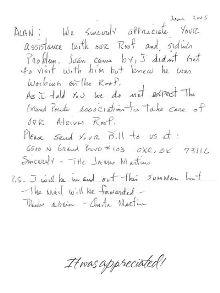 June 2005
ALAN: We sincerely appreciate your
assistance with our Roof and, siding
Problem. Juan came by, I didn't get
to visit with him but knew he was
working on the Roof.
As I told you we do not expect the
association to take care of
our Atrium Roof.
Please send your Bill to us at:
6510 N Grand Blvd #103 OKC, OK 73116
Sincerely - The James Martins
P.S. I will be in and out this summer but
- The mail will be forwarded -
Thanks again - Martin
It was appreciated!